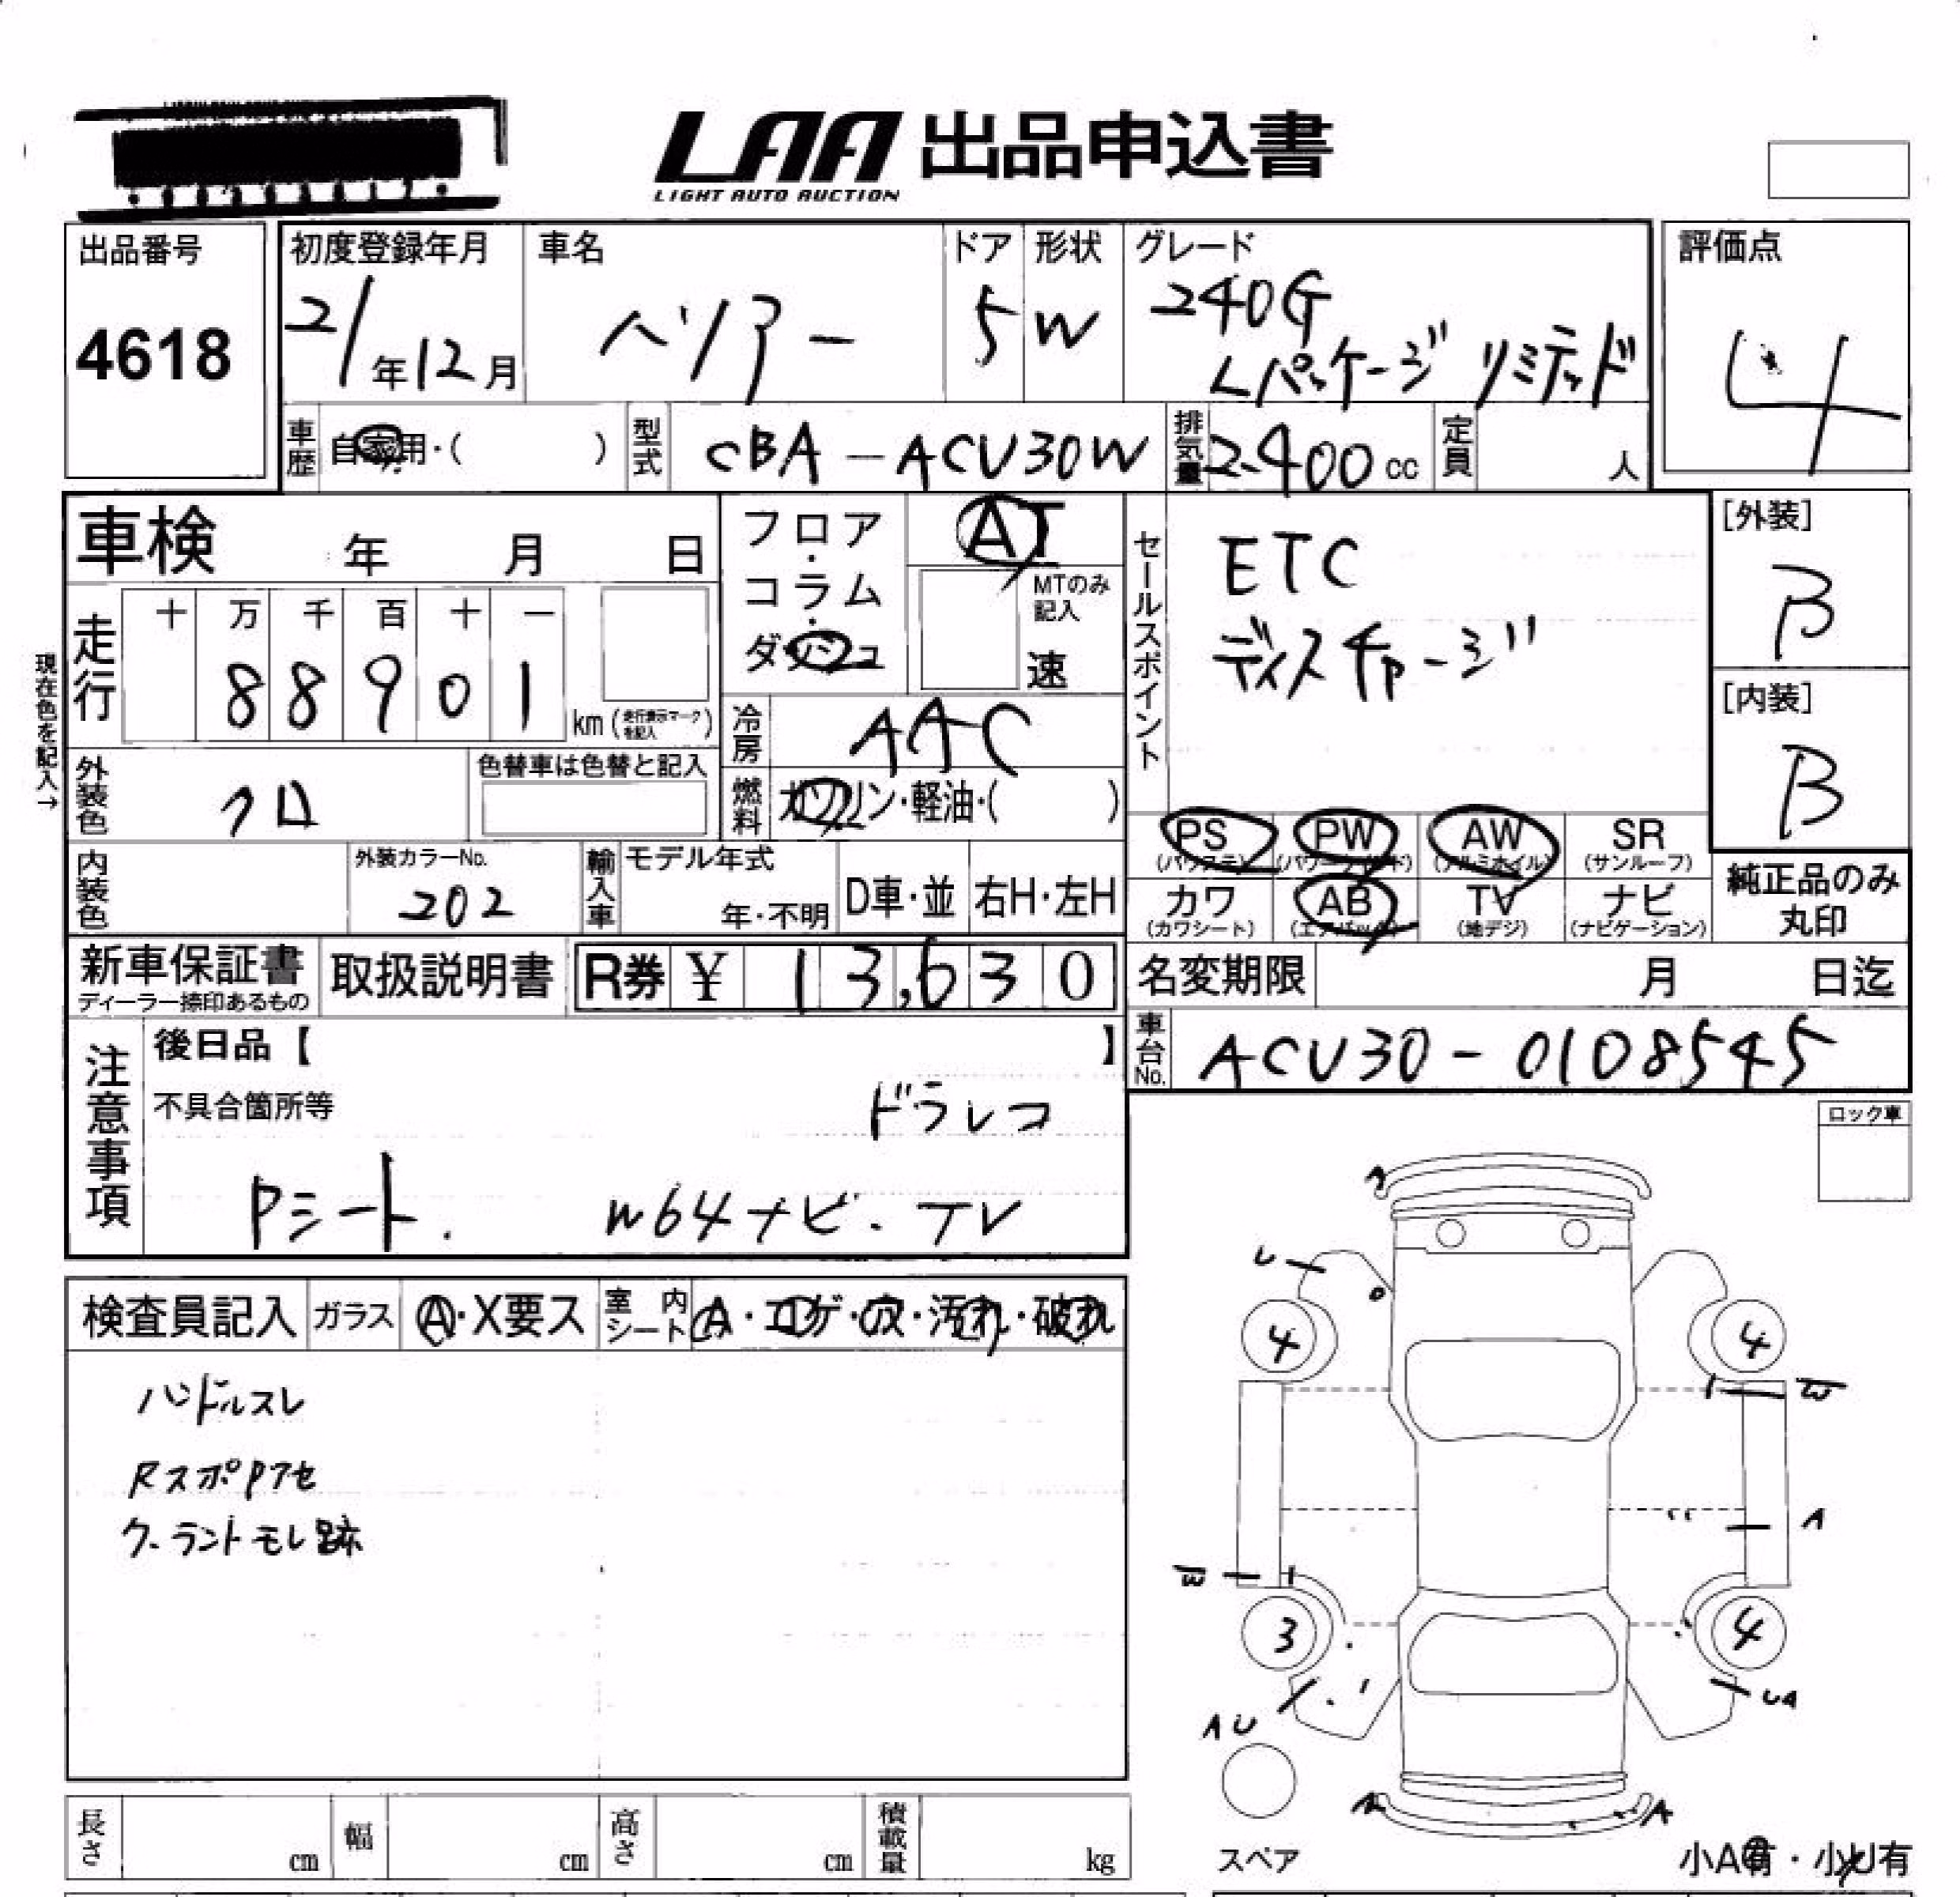 LAA 出品申込書
LIGHT AUTO AUCTION
出品番号
4618
初度登録年月
21年12月
車名
ハリアー
ドア
5
形状
W
グレード
240G
Lパッケージ リミテッド
評価点
4
車歴
自家用・( )
型式
CBA-ACU30W
排気量
2400cc
定員
人
車検 年 月 日
フロア・コラム・ダッシュ
AT
MTのみ記入
速
セールスポイント
ETC
ディスチャージ
[外装]
B
[内装]
B
現在色を記入→
走行
十 万 千 百 十 一
8 8 9 0 1
km (走行表示マークを記入)
冷房
AAC
外装色
クロ
色替車は色替と記入
燃料
ガソリン・軽油・( )
PS
(パワステ)
PW
(パワーウィンド)
AW
(アルミホイル)
SR
(サンルーフ)
カワ
(カワシート)
AB
(エアバック)
TV
(地デジ)
ナビ
(ナビゲーション)
純正品のみ
丸印
内装色
外装カラーNo.
202
輸入車
モデル年式
年・不明
D車・並
右H・左H
新車保証書
ディーラー捺印あるもの
取扱説明書
R券 ¥ 13,630
名変期限 月 日迄
車台No.
ACU30-0108545
注意事項
後日品【 】
不具合箇所等
ドラレコ
Pシート. W64ナビ・TV
ロック車
検査員記入
ガラス
A・X要ス
室内シート
A・コゲ・穴・汚れ・破れ
ハンドルスレ
RスポPアセ
クーラントモレ跡
A
U
4
4
W
A
B
3
4
AU
UA
A
A
スペア
小A有・小U有
長さ
cm
幅
cm
高さ
cm
積載量
kg